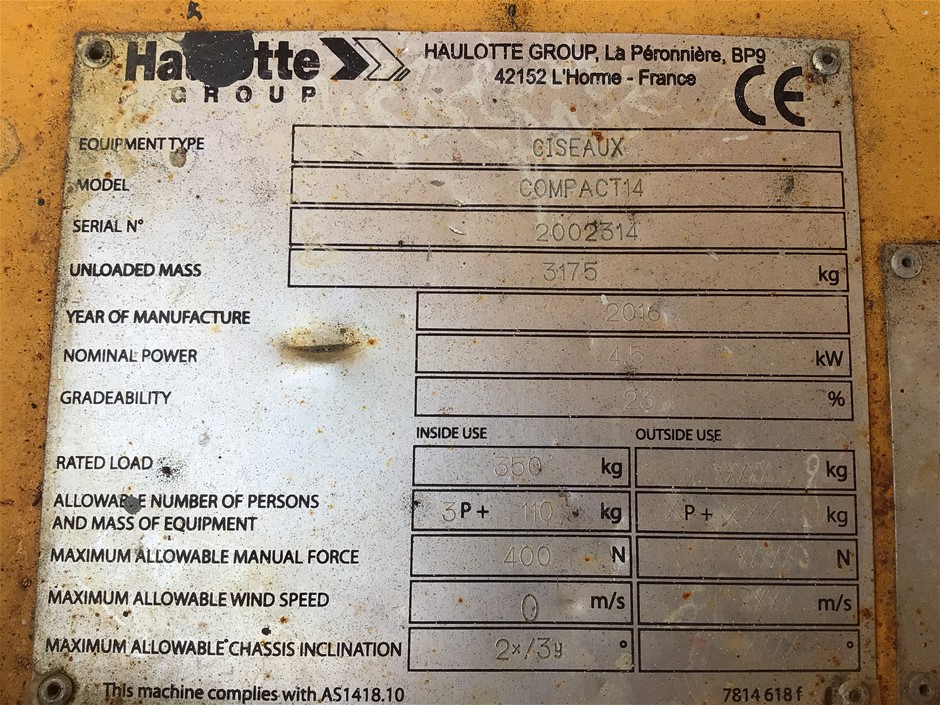 Haulotte
GROUP
HAULOTTE GROUP, La Péronnière, BP9
42152 L'Horme - France
CE
EQUIPMENT TYPE CISEAUX
MODEL COMPACT14
SERIAL N° 2002314
UNLOADED MASS 3175 kg
YEAR OF MANUFACTURE 2016
NOMINAL POWER 4.5 kW
GRADEABILITY 23 %
INSIDE USE OUTSIDE USE
RATED LOAD 350 kg XXXXX kg
ALLOWABLE NUMBER OF PERSONS
AND MASS OF EQUIPMENT 3P + 110 kg X P + X kg
MAXIMUM ALLOWABLE MANUAL FORCE 400 N N
MAXIMUM ALLOWABLE WIND SPEED 0 m/s m/s
MAXIMUM ALLOWABLE CHASSIS INCLINATION 2x/3y ° °
This machine complies with AS1418.10
7814 618 f